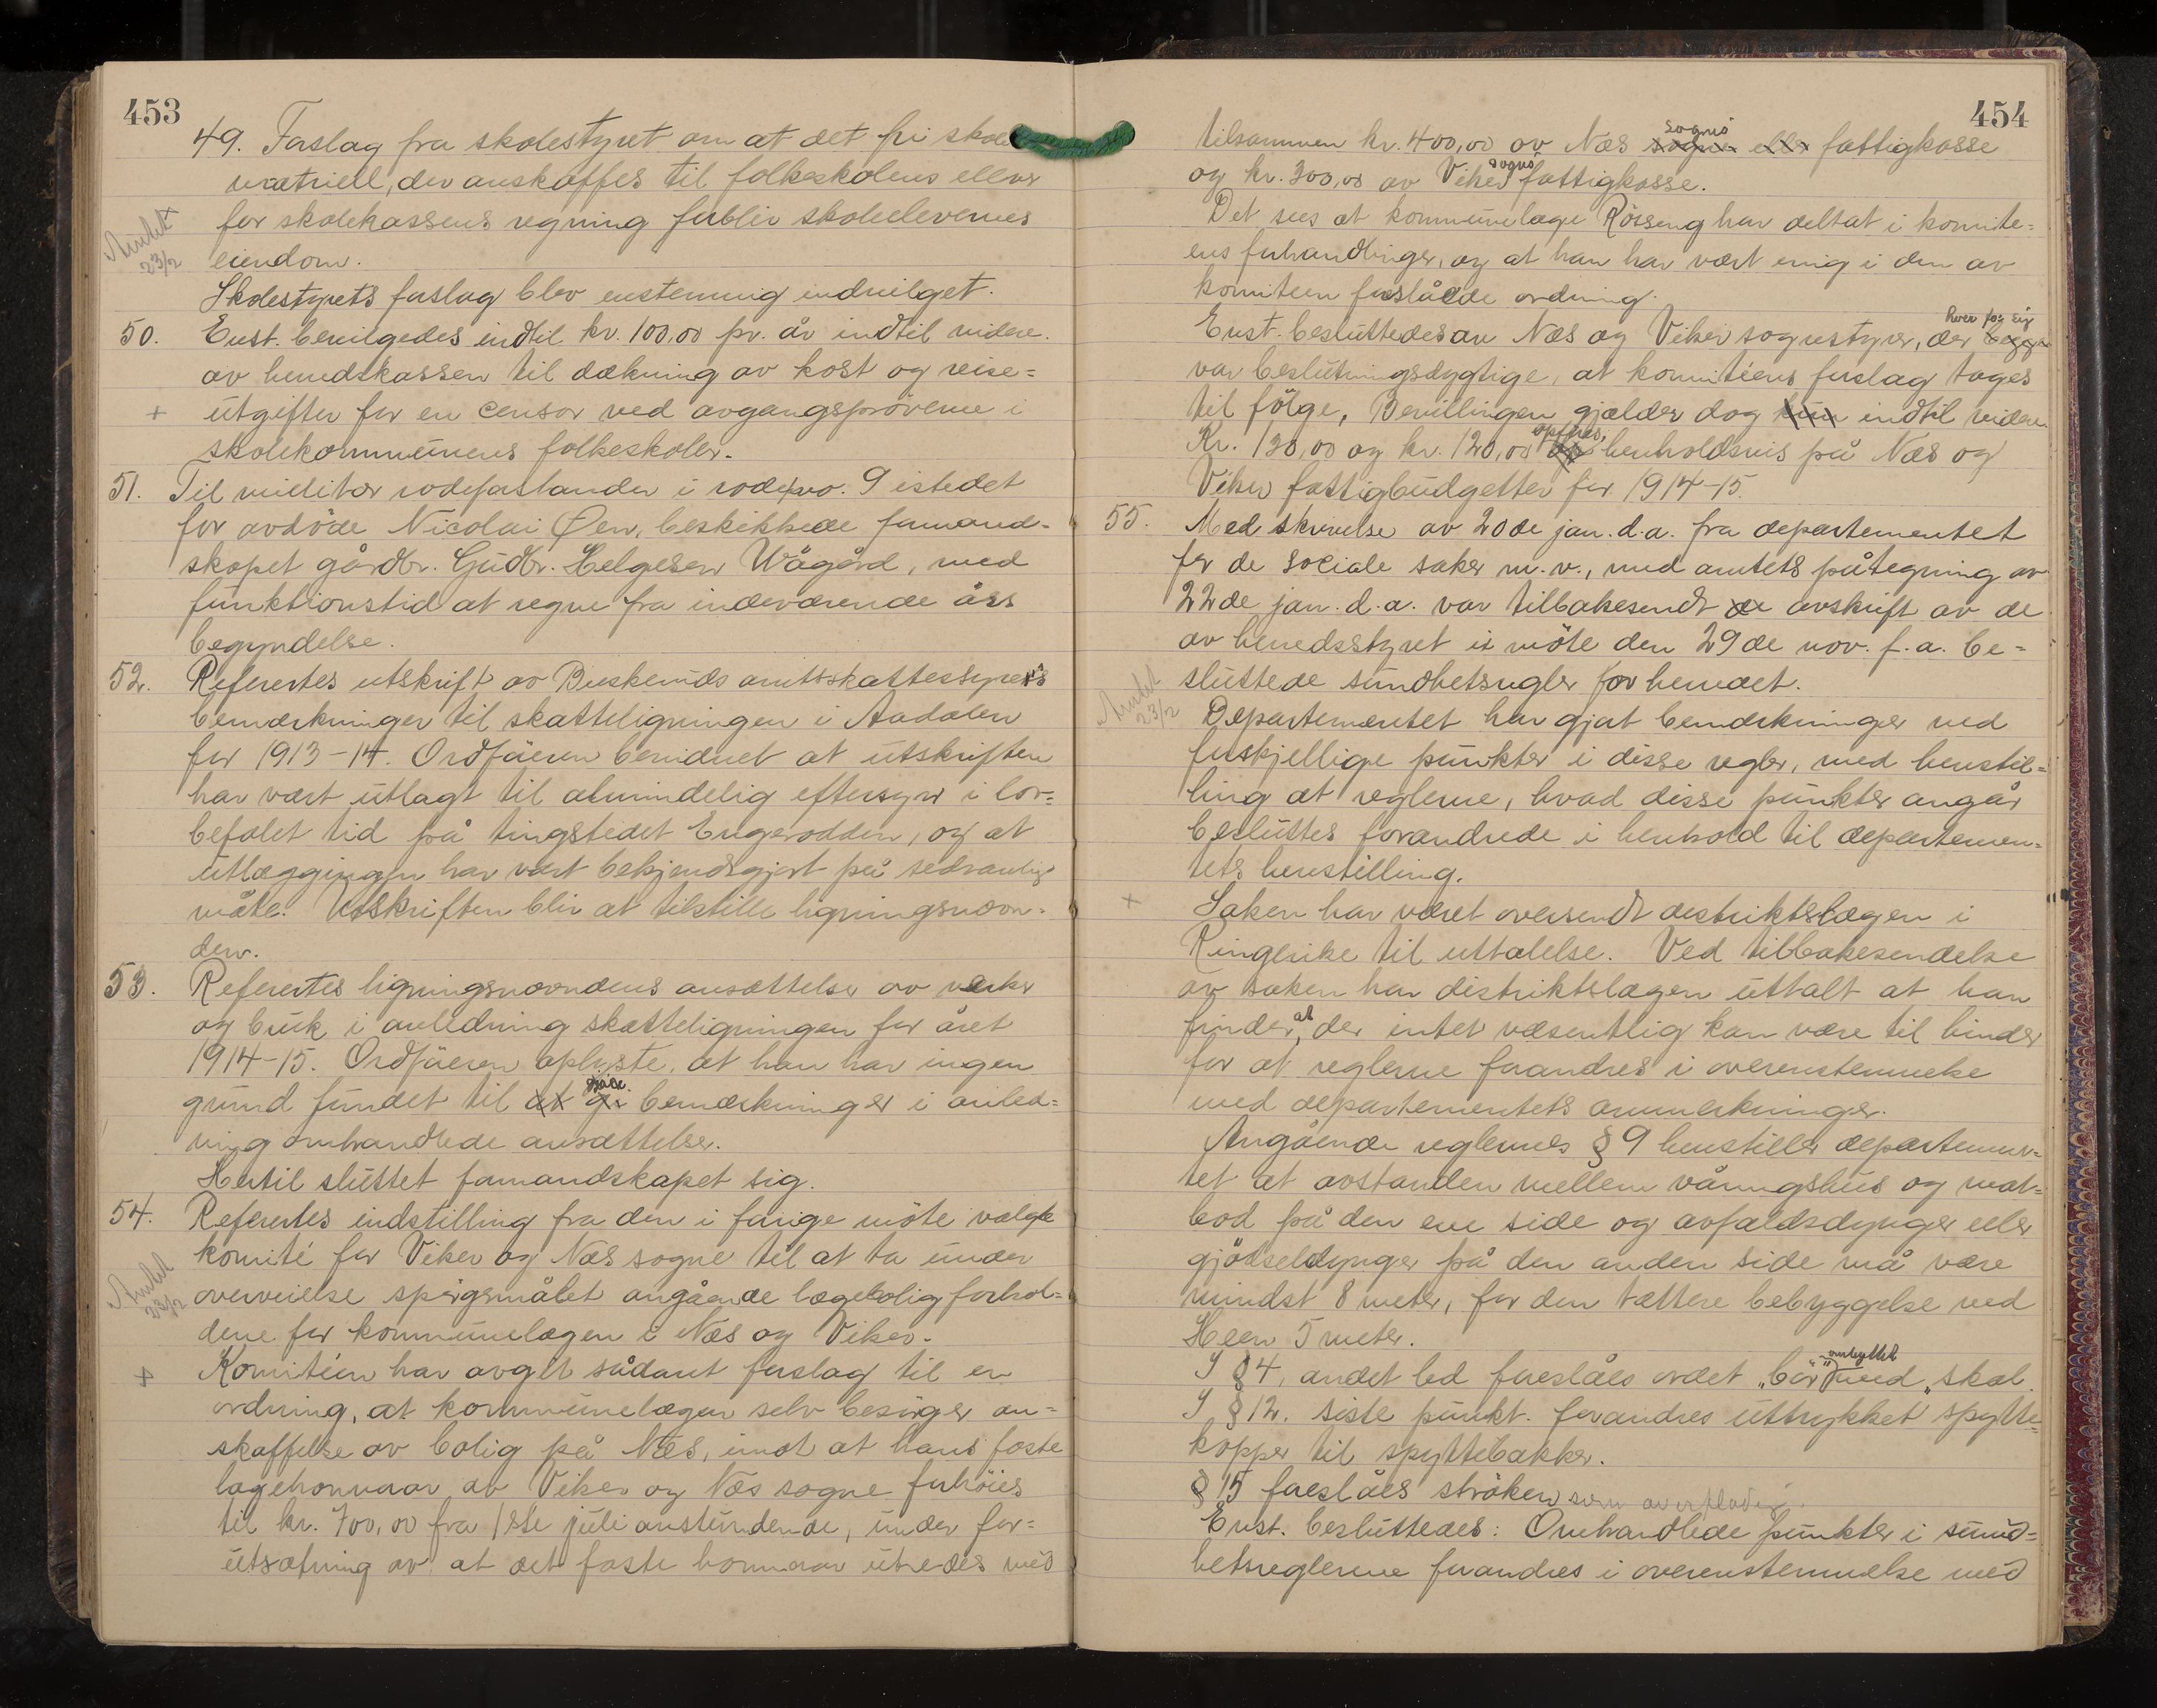 453
49. Forslag fra skolestyret om at det fri skole
matriell, der anskaffes til folkeskolens elever
for skolekassens regning forblir skoleelevernes
eiendom.
Amtet
23/2
Skolestyrets forslag blev enstemmig indvilget.
50. Enst. bevilgedes indtil kr. 100,00 pr. år indtil videre
av herredskassen til dækning av kost og reise=
+ utgifter for en censor ved avgangsprøverne i
skolekommunens folkeskoler.
51. Til militær rodeforstander i rode no. 9 istedet
for avdøde Nicolai Øen, beskikkede formand-
skapet gårdbr. Gudbr. Helgesen Wågård, med
funktionstid at regne fra indeværende års
begyndelse.
52. Referertes utskrift av Buskeruds amtsskattestyres
bemærkninger til skatteligningen i Aadalen
for 1913-14. Ordføreren bemerket at utskriften
har vært utlagt til almindelig eftersyn i lov=
befalet tid på tingstedet Engerodden, og at
utlæggingen har vært bekjendtgjort på sedvanlig
måte. Utskriften blir at tilstille ligningsnævn-
den.
53. Referertes ligningsnævndens ansættelse av verker
og bruk i anledning skatteligningen for året
1914-15. Ordføreren oplyste, at han har ingen
grund fundet til at gi gjøre bemærkninger i anled=
ning omhandlede ansættelse.
Hertil sluttet formandskapet sig.
54. Referertes indstilling fra den i forrige møte valgte
komité for Viker og Næs sogne til at ta under
Amtet
23/2
overveielse spørgsmålet angående lægeboligforhol=
dene for kommunelægen i Næs og Viker.
+ Komitéen har avgit sådant forslag til en
ordning, at kommunelægen selv besørger an=
skaffelse av bolig på Næs, imot at hans faste
lægehonorar av Viker og Næs sogne forhøies
til kr. 700,00 fra 1ste juli anstundende, under for=
utsætning av at det faste honorar utredes med
454
tilsammen kr. 400,00 av Næs sogns fattigkasse
og kr. 300,00 av Viker sogns fattigkasse.
Det sees at kommunelæge Rørseng har deltat i komite=
ens forhandlinger, og at han har vært enig i den av
komiteen foreslåede ordning.
Enst. besluttedes av Næs og Viker sognestyrer, der begge hver for sig
var beslutningsdygtige, at komitéens forslag tages
til følge, Bevillingen gjælder dog kun indtil videre.
Kr. 130,00 og kr. 120,00 opføres henholdsvis på Næs og
Viker fattigbudgetter for 1914-15.
55. Med skrivelse av 20de jan. d.a. fra departementet
for de sociale saker m.v., med amtets påtegning av
22de jan. d.a. var tilbakesendt avskrift av de
av herredsstyret i møte den 29de nov. f.a. be=
sluttede sundhetsregler for herredet.
Amtet
23/2
Departementet har gjort bemærkninger ved
forskjellige punkter i disse regler, med henstil=
ling at reglerne, hvad disse punkter angår
besluttes forandrede i henhold til departemen=
tets henstilling.
+ Saken har været oversendt destriktslægen i
Ringerike til uttalelse. Ved tilbakesendelse
av saken har distriktslægen uttalt at han
finder, at der intet væsentlig kan være til hinder
for at reglerne forandres i overenstemmelse
med departementets anmerkninger.
Angående reglernes § 9 henstiller departemen=
tet at avstanden mellem våningshus og mat=
bod på den ene side og avfaldsdynger eller
gjødseldynger på den anden side må være
mindst 8 meter, for den tættere bebyggelse ved
Heen 5 meter.
I § 4, andet led foreslåes ordet „bør" ombyttet med „skal.
I § 12. siste punkt. forandres uttrykket spytte=
kopper til spyttebakker.
§ 15 foreslåes strøken som overflødig.
Enst. besluttedes: Omhandlede punkter i sund=
hetsreglerne forandres i overenstemmelse med